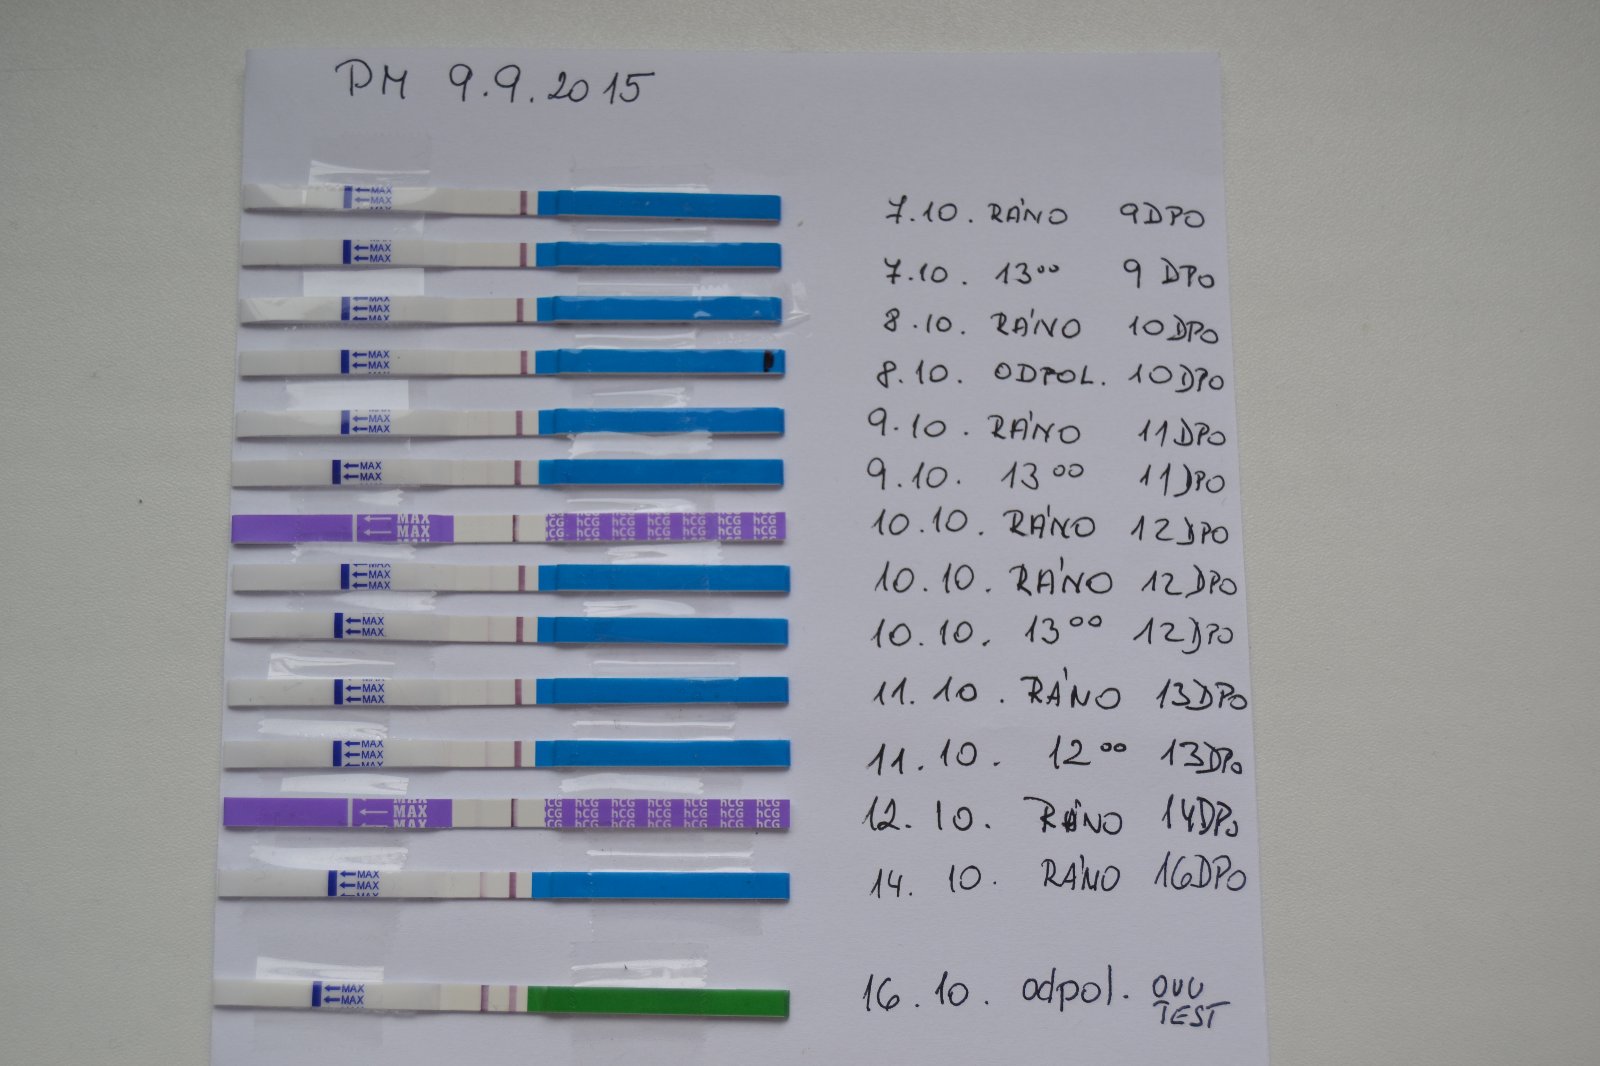 PM 9.9.2015
MAX MAX 7.10. RÁNO 9DPO
MAX MAX 7.10. 13⁰⁰ 9 DPO
MAX MAX MAX 8.10. RÁNO 10DPO
MAX MAX 8.10. ODPOL. 10DPO
MAX MAX 9.10. RÁNO 11DPO
MAX MAX 9.10. 13⁰⁰ 11DPO
MAX MAX hCG hCG hCG hCG hCG hCG hCG 10.10. RÁNO 12DPO
MAX MAX 10.10. RÁNO 12DPO
MAX MAX 10.10. 13⁰⁰ 12DPO
MAX MAX 11.10. RÁNO 13DPO
MAX MAX 11.10. 12⁰⁰ 13DPO
MAX MAX MAX hCG hCG hCG hCG hCG hCG hCG 12.10. RÁNO 14DPO
MAX MAX 14.10. RÁNO 16DPO
MAX MAX 16.10. odpol. OVU
TEST